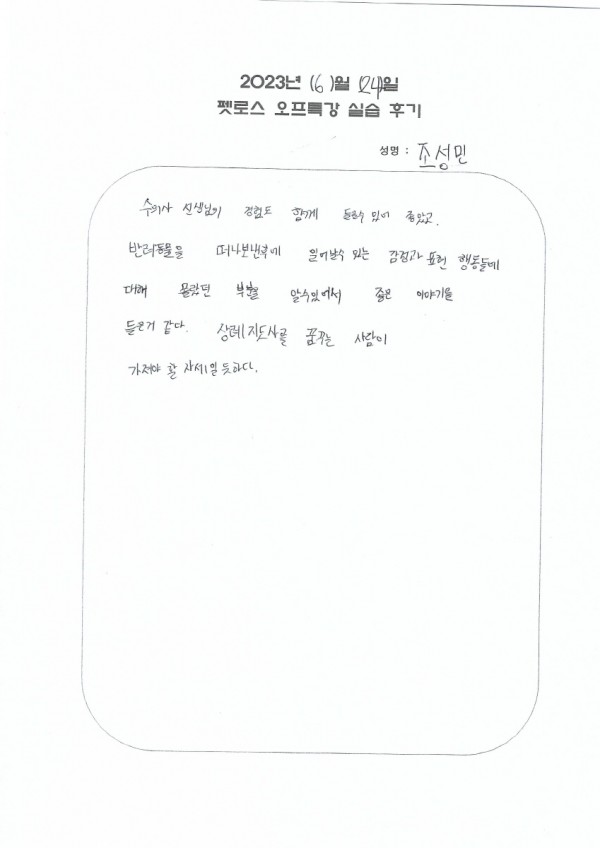 2023년 (6)월 (24)일
펫로스 오프특강 실습 후기
성명 : 조성민
수의사 선생님의 경험도 함께 들을수 있어 좋았고,
반려동물을 떠나보낸후에 일어날수 있는 감정과 표현 행동들에
대해 몰랐던 부분을 알수있어서 좋은 이야기를
들은거 같다. 상례지도사를 꿈꾸는 사람이
가져야 할 자세일 듯하다.